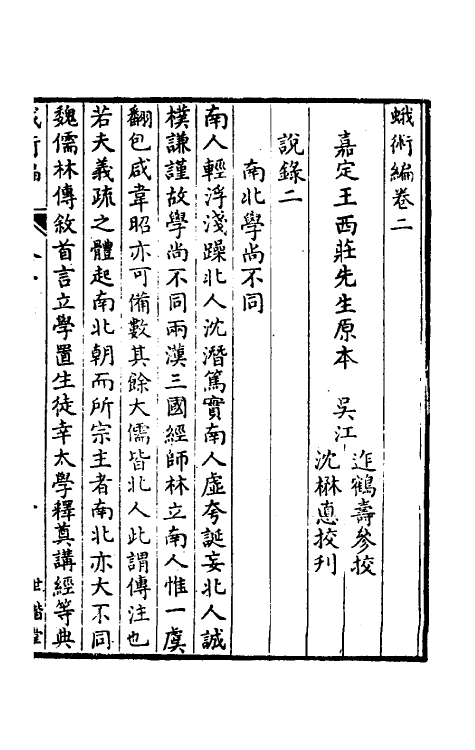 蛾術編卷二
嘉定王西莊先生原本　吳江
迮鶴壽參挍
沈楙悳挍刊
說錄二
南北學尚不同
南人輕浮淺躁北人沈潛篤實南人虛夸誕妄北人誠
樸謙謹故學尚不同兩漢三國經師林立南人惟一虞
翻包咸韋昭亦可備數其餘大儒皆北人此謂傳注也
若夫義疏之體起南北朝而所宗主者南北亦大不同
魏儒林傳敘首言立學置生徒幸太學釋奠講經等典
世楷堂